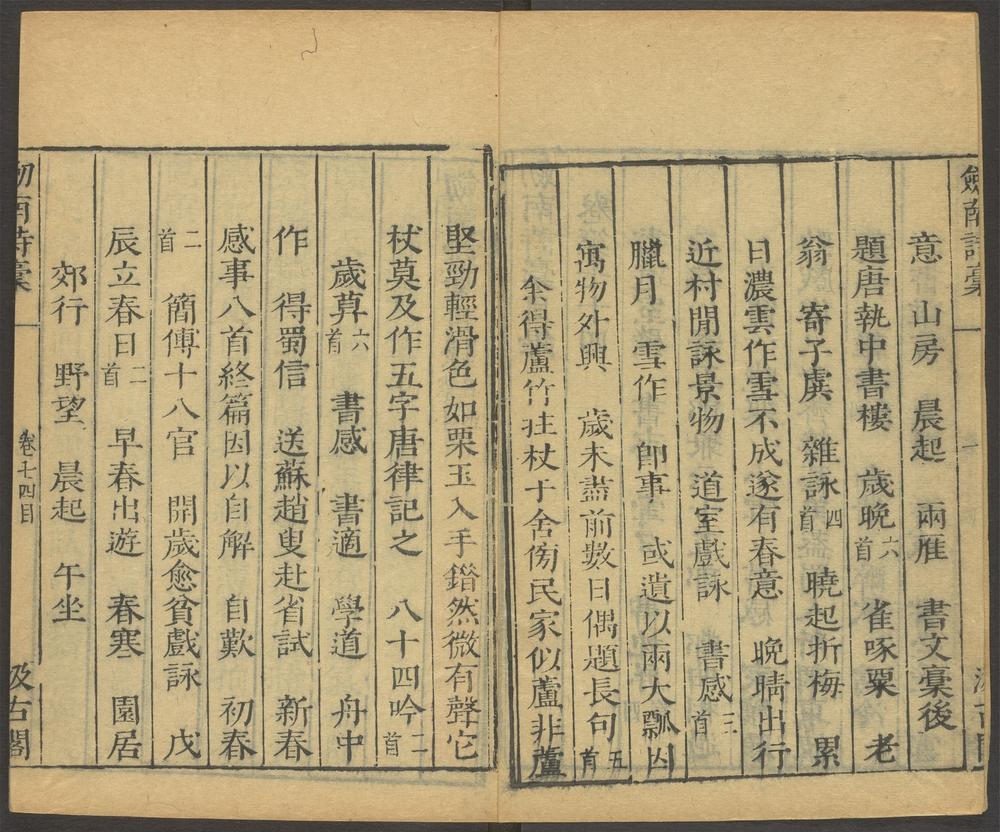 劍南詩稾
意　山房　晨起　兩雁　書文稾後
題唐執中書樓　歲晚六首　雀啄粟　老
翁　寄子虡　雜詠四首　曉起折梅　累
日濃雲作雪不成遂有春意　晚晴出行
近村閒詠景物　道室戲詠　書感三首
臘月　雪作　卽事　或遺以兩大瓢因
寓物外興　歲未盡前數日偶題長句五首
余得蘆竹拄杖于舍傍民家似蘆非蘆
堅勁輕滑色如栗玉入手鏘然微有聲它
杖莫及作五字唐律記之　八十四吟二首
歲暮六首　書感　書適　學道　舟中
作　得蜀信　送蘇趙叟赴省試　新春
感事八首終篇因以自解　自歎　初春
二首　簡傅十八官　開歲愈貧戲詠　戊
辰立春日二首　早春出遊　春寒　園居
郊行　野望　晨起　午坐
劍南詩稾　卷七十四目　汲古閣